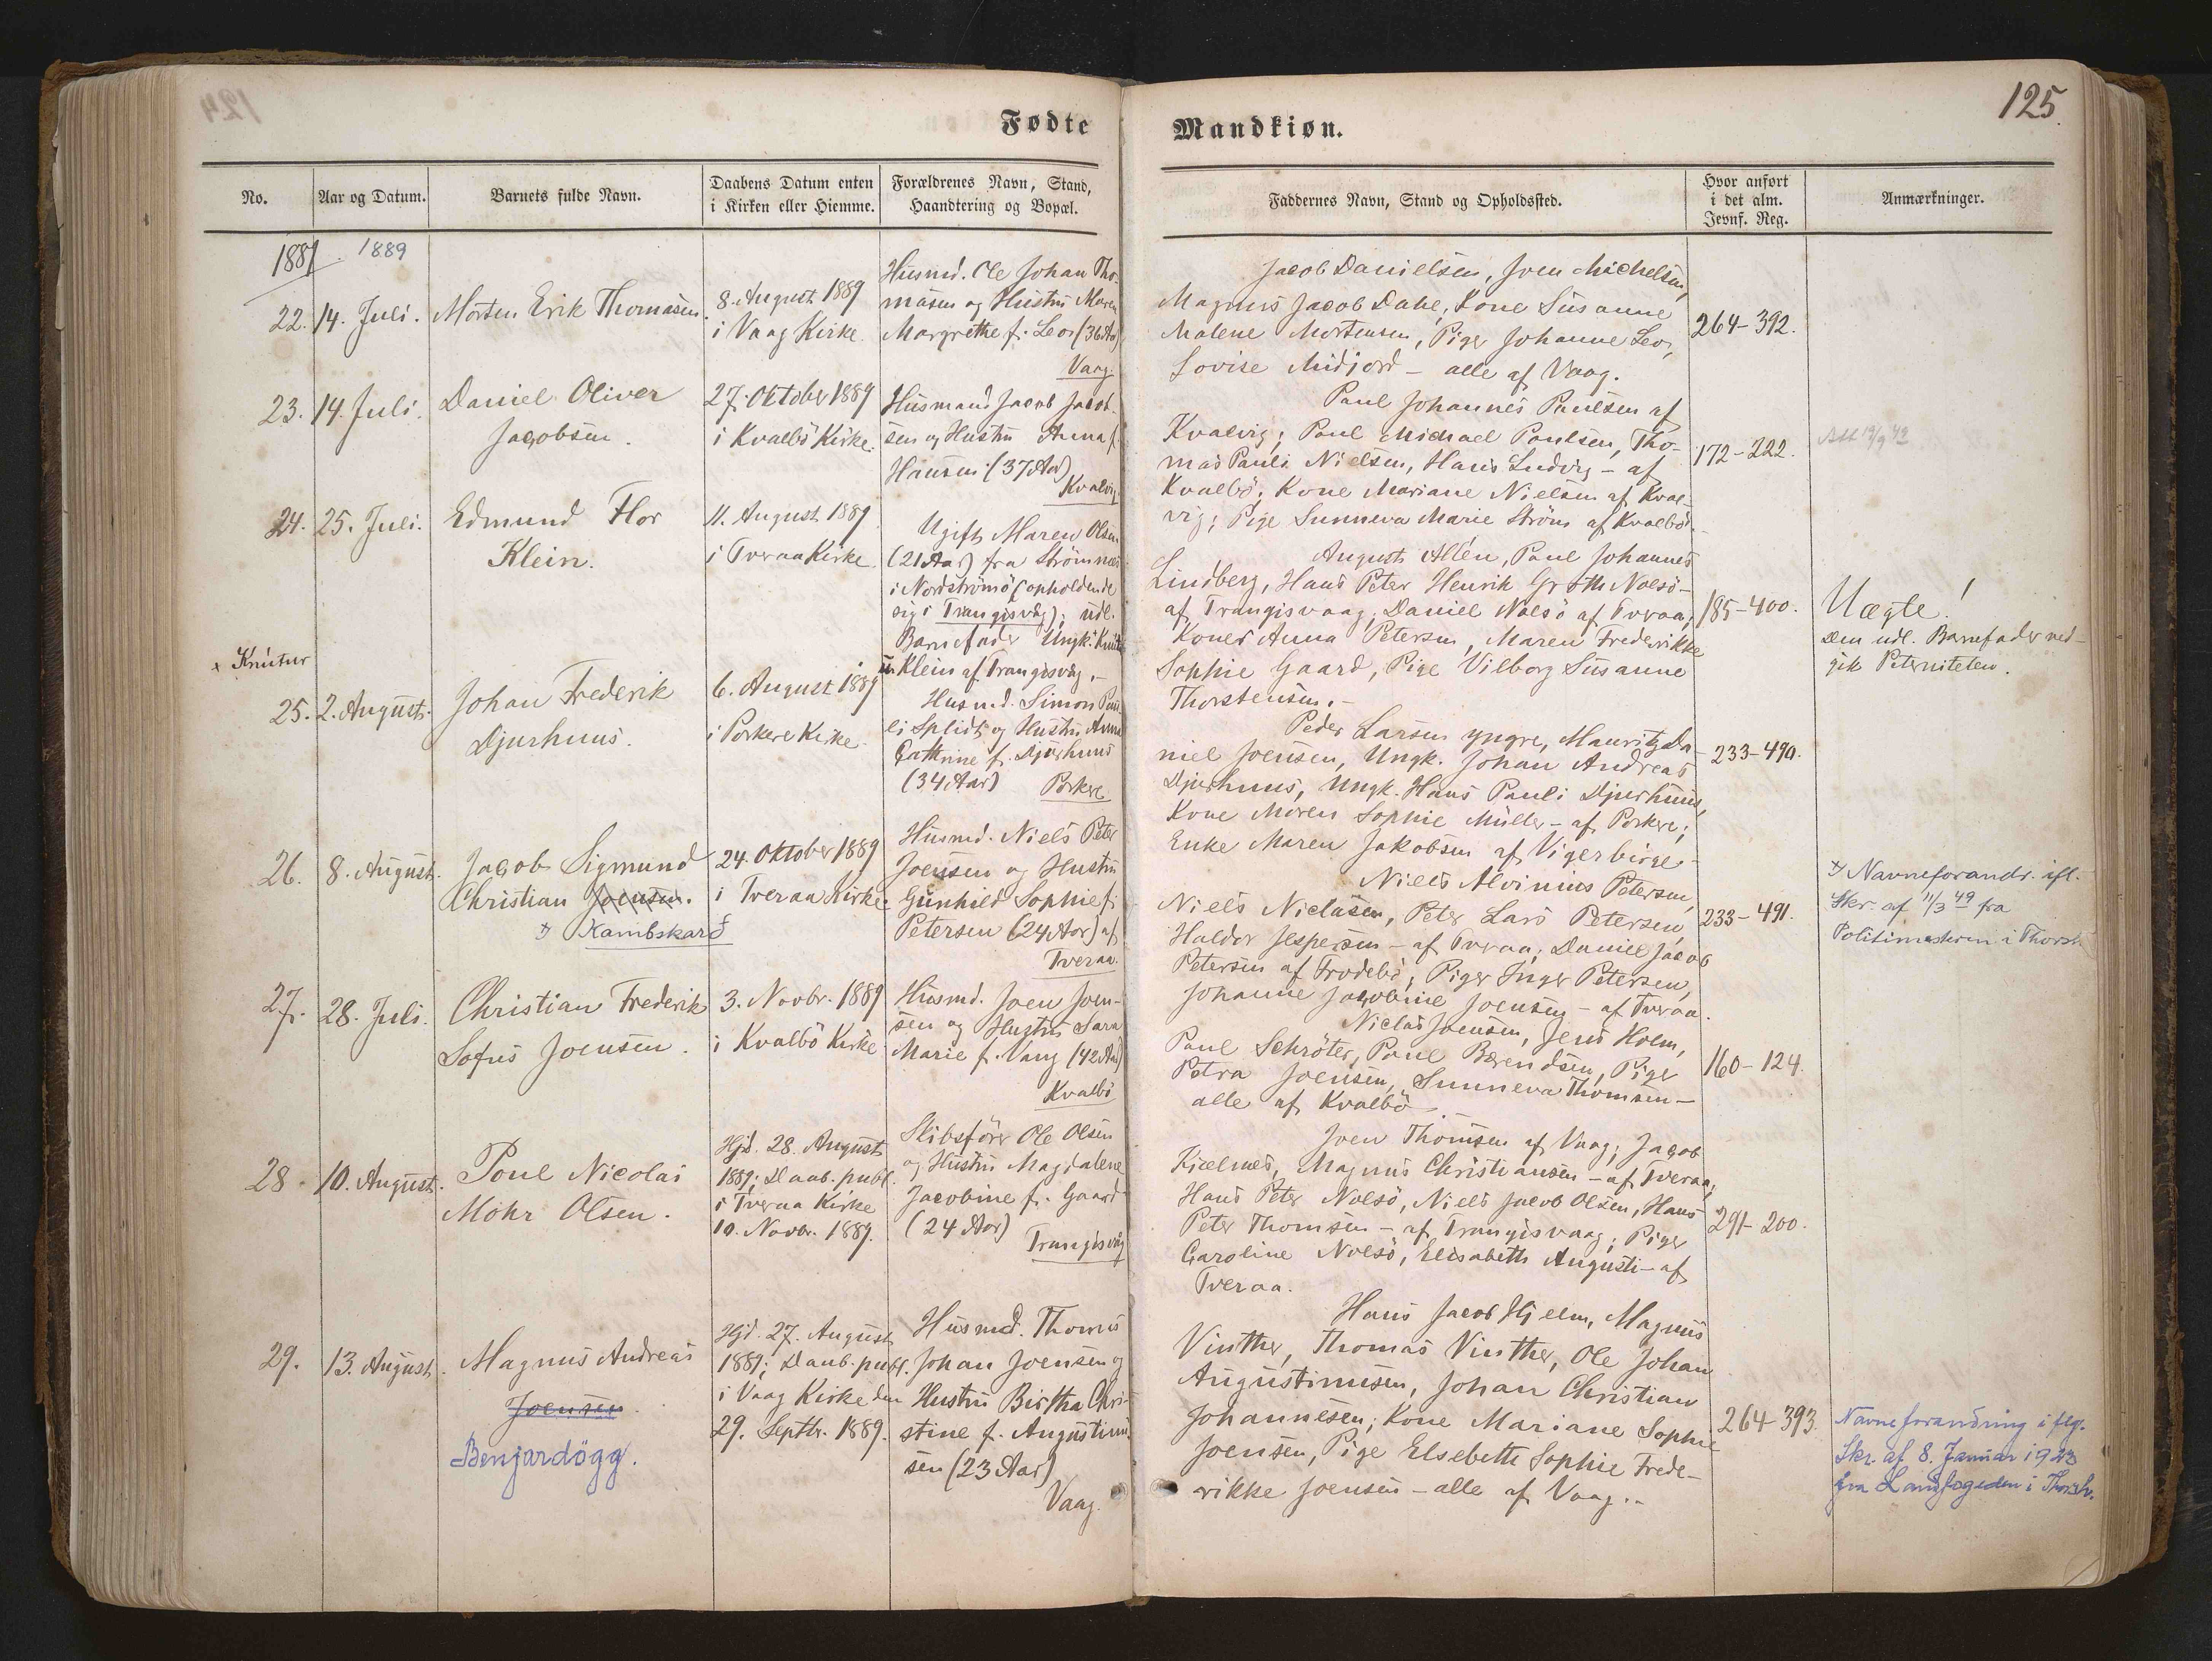 Fødte
No.
Aar og Datum.
Barnets fulde Navn.
Daabens Datum enten
i Kirken eller Hiemme.
Forældrenes Navn, Stand,
Haandtering og Bopæl.
1889
1889
22.
14. Juli.
Morten Erik Thomasen.
8. August 1889
i Vaag Kirke.
Husmd. Ole Johan Tho-
masen og Hustru Maren
Margrethe f. Leo (36 Aar)
Vaag.
23.
14. Juli.
Daniel Oliver
Jacobsen.
27. Oktober 1889
i Kvalbö Kirke.
Husmand Jacob Jacob-
sen og Hustru Anna f.
Hansen (37 Aar)
Kvalvig.
24.
25. Juli.
Edmund Flor
Klein.
11. August 1889
i Tveraa Kirke.
Ugift Maren Olsen
(21 Aar) fra Strömnæs
i Nordströmö (opholdende
sig i Trangisvåg); udl.
Barnefader Ungk. Knút
x Knútur
Klein af Trangisvåg.-
25.
2. August.
Johan Frederik
Djurhuus.
6. August 1889
i Porkere Kirke.
Husmd. Simon Pau-
li Splidt og Hustru Anna
Cathrine f. Djurhuus
(34 Aar)
Porkere
26.
8. August.
Jacob Sigmund
Christian Joensen.
x) Kambskarð
24. Oktober 1889
i Tveraa Kirke.
Husmd. Niels Peter
Joensen og Hustru
Gunhild Sophie f.
Petersen (24 Aar) af
Tveraa.
27.
28. Juli.
Christian Frederik
Sofus Joensen.
3. Novbr. 1889
i Kvalbö Kirke
Husmd. Joen Joen-
sen og Hustru Sara
Marie f. Vang (42 Aar)
Kvalbö
28.
10. August.
Poul Nicolai
Mohr Olsen.
Hjd. 28. August
1889; Daab. publ.
i Tveraa Kirke
10. Novbr. 1889.
Skibsförer Ole Olsen
og Hustru Magdalene
Jacobine f. Gaard
(24 Aar)
Trangisvåg
29.
13. August.
Magnus Andreas
Joensen.
Benjardögg.
Hjd. 27. August
1889; Daab. publ.
i Vaag Kirke den
29. Septbr. 1889.
Husmd. Thomas
Johan Joensen og
Hustru Birtha Chri-
stine f. Augustinu-
sen (23 Aar)
Vaag.
125.
Mandkiøn.
Faddernes Navn, Stand og Opholdssted.
Hvor anført
i det alm.
Jevnf. Reg.
Anmærkninger.
Jacob Danielsen, Joen Michelsen,
Magnus Jacob Dahl, Kone Susanne
Malene Mortensen, Piger Johanne Leo,
Lovise Midjord - alle af Vaag.
264-392.
Poul Johannes Poulsen af
Kvalvig; Poul Michael Poulsen, Tho-
mas Pauli Nielsen, Hans Ludvig - af
Kvalbö; Kone Mariane Nielsen af Kval-
vig; Pige Sunneva Marie Ström af Kvalbö.
172-222.
August Allén, Poul Johannes
Lindberg, Hans Peter Henrik Groth Nolsö-
af Trangisvaag, Daniel Nolsö af Tveraa;
Koner Anna Petersen, Maren Frederikke
Sophie Gaard, Pige Vilborg Susanne
Thorstensen.-
185-400.
Uægte!
Den udl. Barnefader ved-
gik Paterniteten.
Peder Larsen yngre, Mauritz Da-
niel Joensen, Ungk. Johan Andreas
Djurhuus, Ungk. Hans Pauli Djurhuus,
Kone Maren Sophie Müller - af Porkere;
Enke Maren Jakobsen af Vigerbirge.-
233-490.
Niels Alvinius Petersen,
Niels Niclasen, Peter Lars Petersen,
Haldor Jespersen - af Tveraa; Daniel Jacob
Petersen af Frodebö; Piger Inger Petersen,
Johanne Jacobine Joensen - af Tveraa.
233-491.
x) Navneforandr. ifl.
Skr. af 11/3 49 fra
Politimesteren i Thorsh.
Niclas Joensen, Jens Holm,
Poul Schröter, Poul Berendsen, Piger
Petra Joensen, Sunneva Thomsen -
alle af Kvalbö.-
160-124.
Joen Thomsen af Vaag; Jacob
Kjælnes, Magnus Christiansen - af Tveraa;
Hans Peter Nolsö, Niels Jacob Olsen, Hans
Peter Thomsen - af Trangisvaag; Piger
Caroline Nolsö, Elisabeth Augusti - af
Tveraa.
291-200.
Hans Jacob Hjelm, Magnus
Vinther, Thomas Vinther, Ole Johan
Augustinusen, Johan Christian
Johannesen; Kone Mariane Sophie
Joensen, Pige Elsebeth Sophie Frede-
rikke Joensen - alle af Vaag.-
264-393.
Navneforandring iflg.
Skr. af 8. Januar 1923
fra Landfogeden i Thorsh.